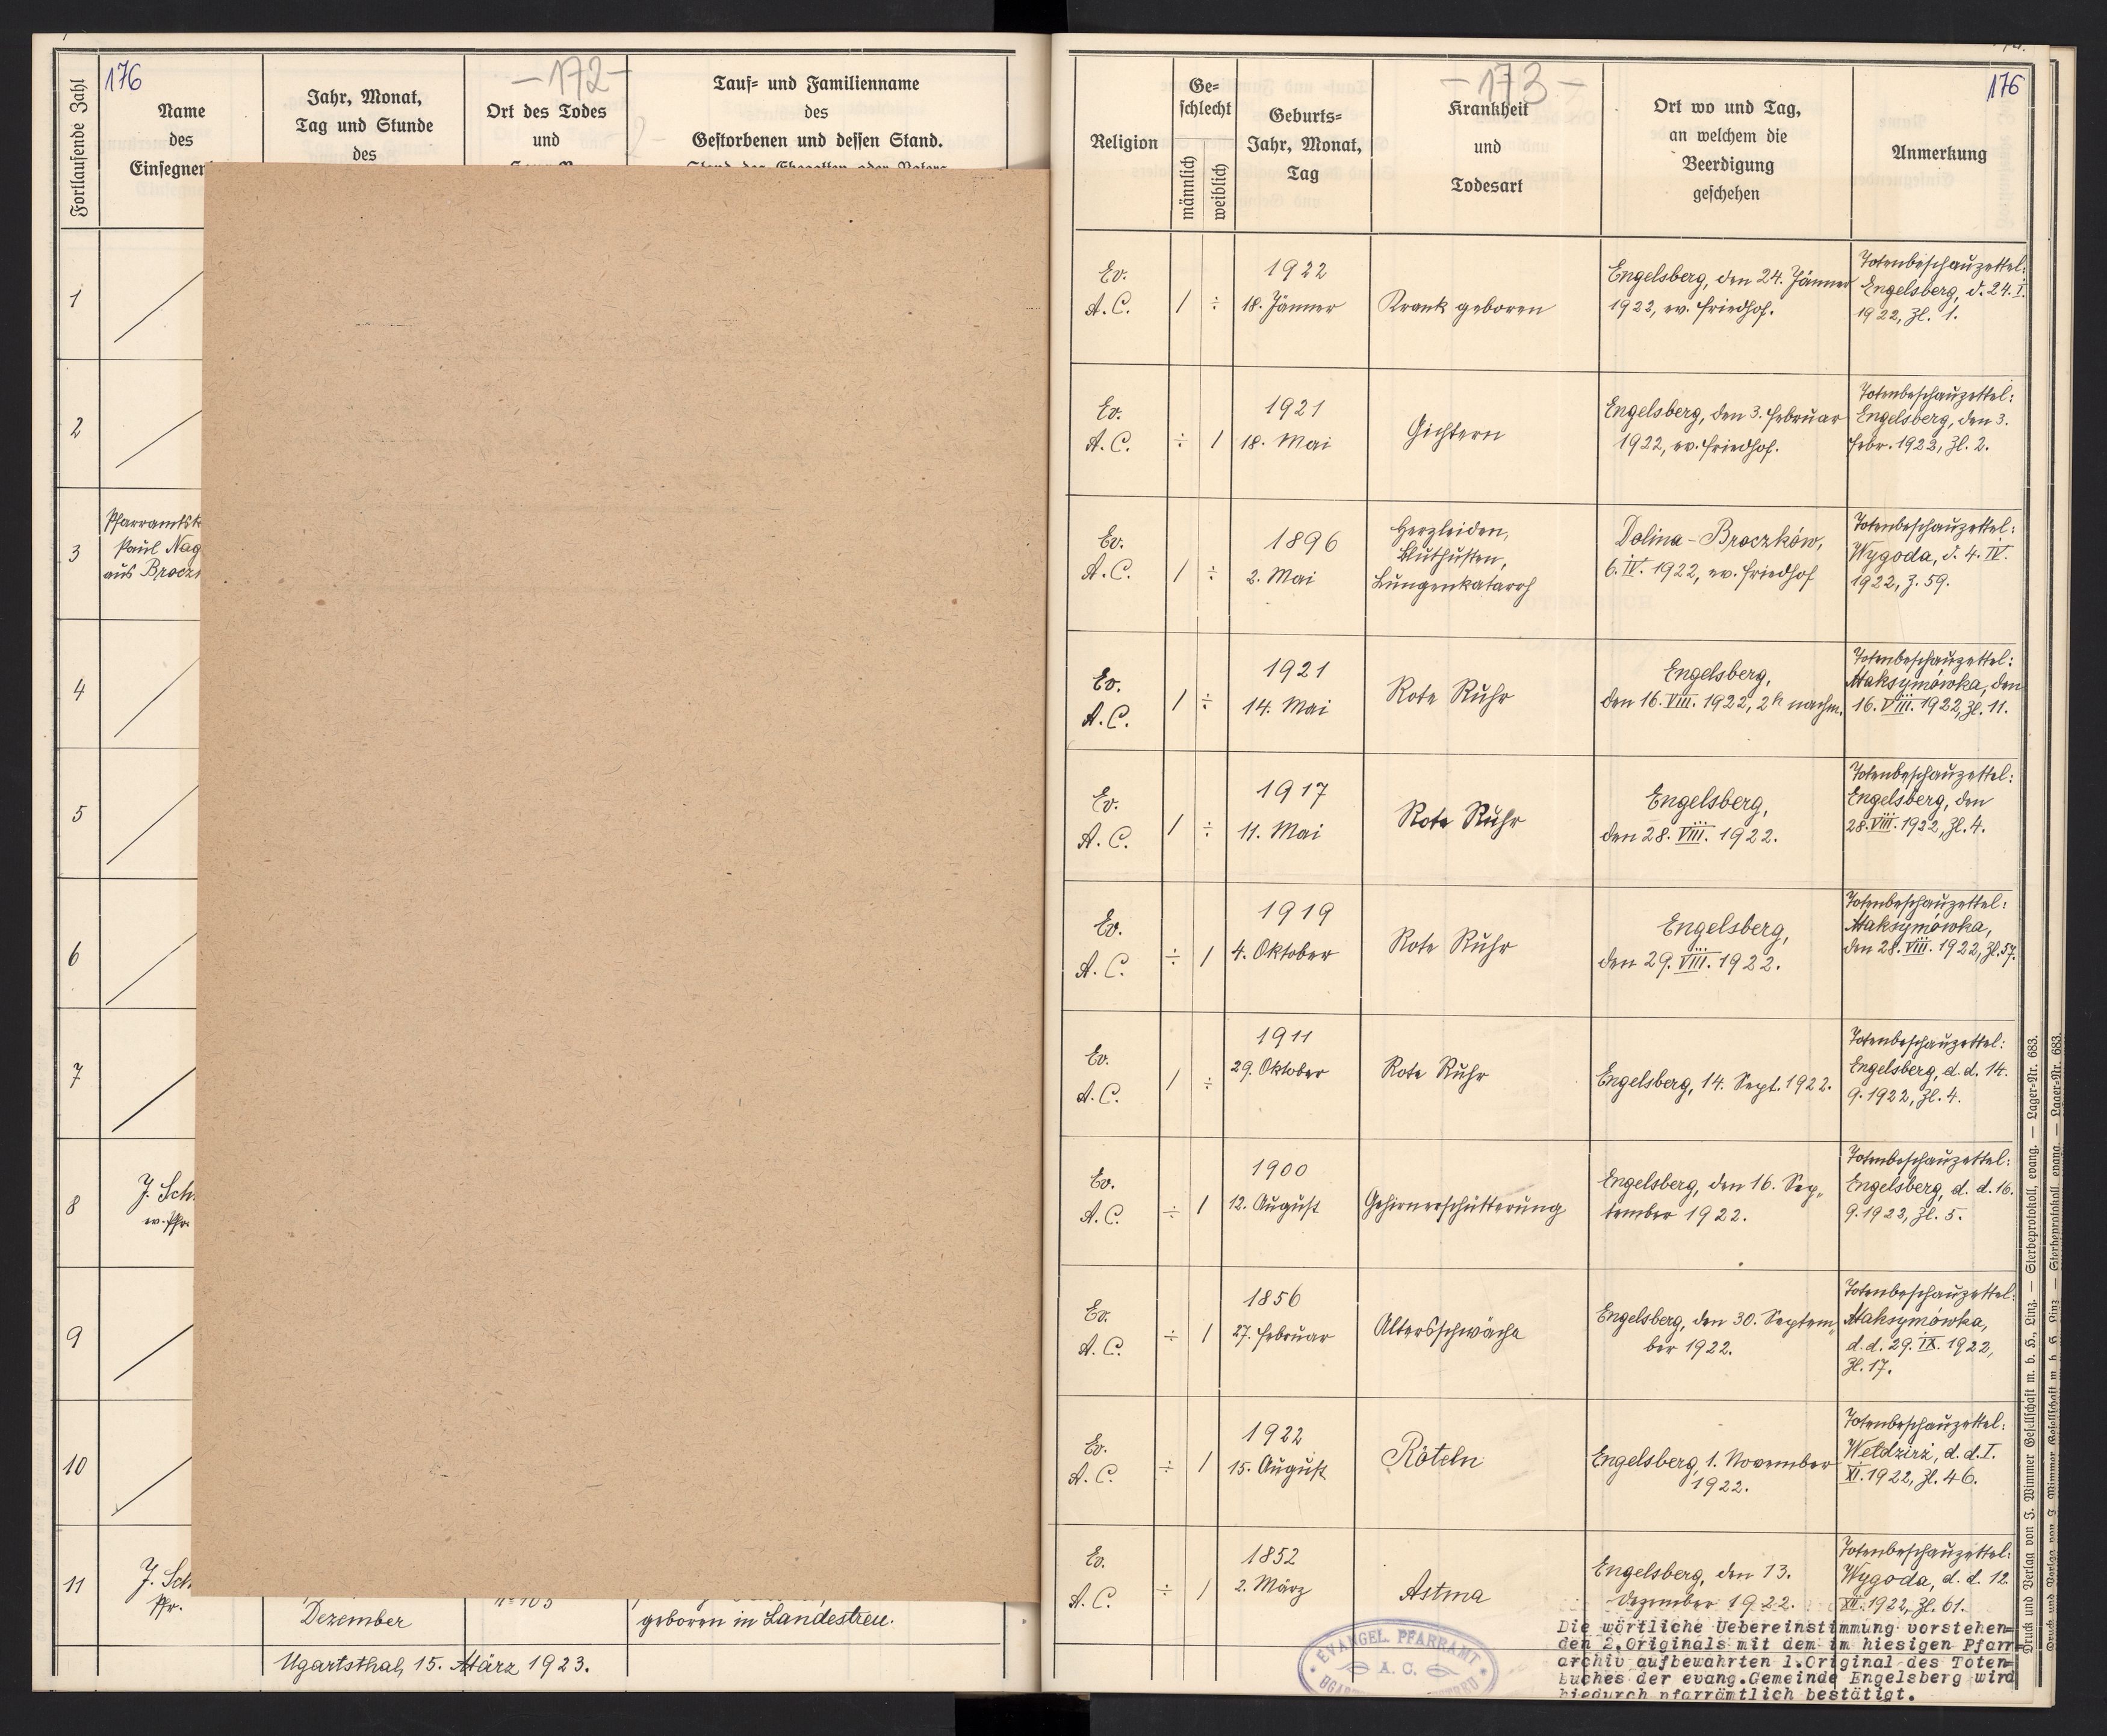 176
-172-
Fortlaufende Zahl
Name
des
Jahr, Monat,
Tag und Stunde
des
Ort des Todes
und
Tauf- und Familienname
des
Gestorbenen und dessen Stand.
1
2
3
Paul Nag
4
5
6
7
8
J. Sch
ev. Pfr.
9
10
11
J. Sch
Pfr.
Dezember
geboren in Landestreu.
Ugartsthal, 15. März 1923.
-173-
176
Religion
Geschlecht
männlich
weiblich
Geburts-
Jahr, Monat,
Tag
Krankheit
und
Todesart
Ort wo und Tag,
an welchem die
Beerdigung
geschehen
Anmerkung
Ev.
A. C.
1
÷
1922
18. Jänner
Krank geboren
Engelsberg, den 24. Jänner
1922, ev. Friedhof.
Totenbeschauzettel:
Engelsberg, d. 24. I.
1922, Zl. 1.
Ev.
A. C.
÷
1
1921
18. Mai
Gichtern
Engelsberg, den 3. Februar
1922, ev. Friedhof.
Totenbeschauzettel:
Engelsberg, den 3.
Febr. 1922, Zl. 2.
Ev.
A. C.
1
÷
1896
2. Mai
Herzleiden,
Bluthusten,
Lungenkatarrh
Dolina-Broczków,
6. IV. 1922, ev. Friedhof
Totenbeschauzettel:
Wygoda, d. 4. IV.
1922, Z. 59.
Ev.
A. C.
1
÷
1921
14. Mai
Rote Ruhr
Engelsberg,
den 16. VIII. 1922, 2h nachm.
Totenbeschauzettel:
Maksymówka, den
16. VIII. 1922, Zl. 11.
Ev.
A. C.
1
÷
1917
11. Mai
Rote Ruhr
Engelsberg,
den 28. VIII. 1922.
Totenbeschauzettel:
Engelsberg, den
28. VIII. 1922, Zl. 4.
Ev.
A. C.
÷
1
1919
4. Oktober
Rote Ruhr
Engelsberg,
den 29. VIII. 1922.
Totenbeschauzettel:
Maksymówka,
den 28. VIII. 1922, Zl. 57.
Ev.
A. C.
1
÷
1911
29. Oktober
Rote Ruhr
Engelsberg, 14. Sept. 1922.
Totenbeschauzettel:
Engelsberg, d. d. 14.
9. 1922, Zl. 4.
Ev.
A. C.
÷
1
1900
12. August
Gehirnerschütterung
Engelsberg, den 16. Sep„
tember 1922.
Totenbeschauzettel:
Engelsberg, d. d. 16.
9. 1922, Zl. 5.
Ev.
A. C.
÷
1
1856
27. Februar
Altersschwäche
Engelsberg, den 30. Septem„
ber 1922.
Totenbeschauzettel:
Maksymówka,
d. d. 29. IX. 1922,
Zl. 17.
Ev.
A. C.
÷
1
1922
15. August
Röteln
Engelsberg 1. November
1922.
Totenbeschauzettel:
Weldzirz, d. d. I.
XI. 1922, Zl. 46.
Ev.
A. C.
÷
1
1852
2. März
Astma
Engelsberg, den 13.
Dezember 1922.
Totenbeschauzettel:
Wygoda, d. d. 12.
XII. 1922, Zl. 61.
EVANGEL. PFARRAMT
A. C.
Die wörtliche Uebereinstimmung vorstehen=
den 2.Originals mit dem im hiesigen Pfarr=
archiv aufbewahrten 1.Original des Toten=
buches der evang.Gemeinde Engelsberg wird
hiedurch pfarrämtlich bestätigt.
Druck und Verlag von J. Wimmer Gesellschaft m. b. H., Linz. — Sterbeprotokoll, evang. — Lager-Nr. 683.